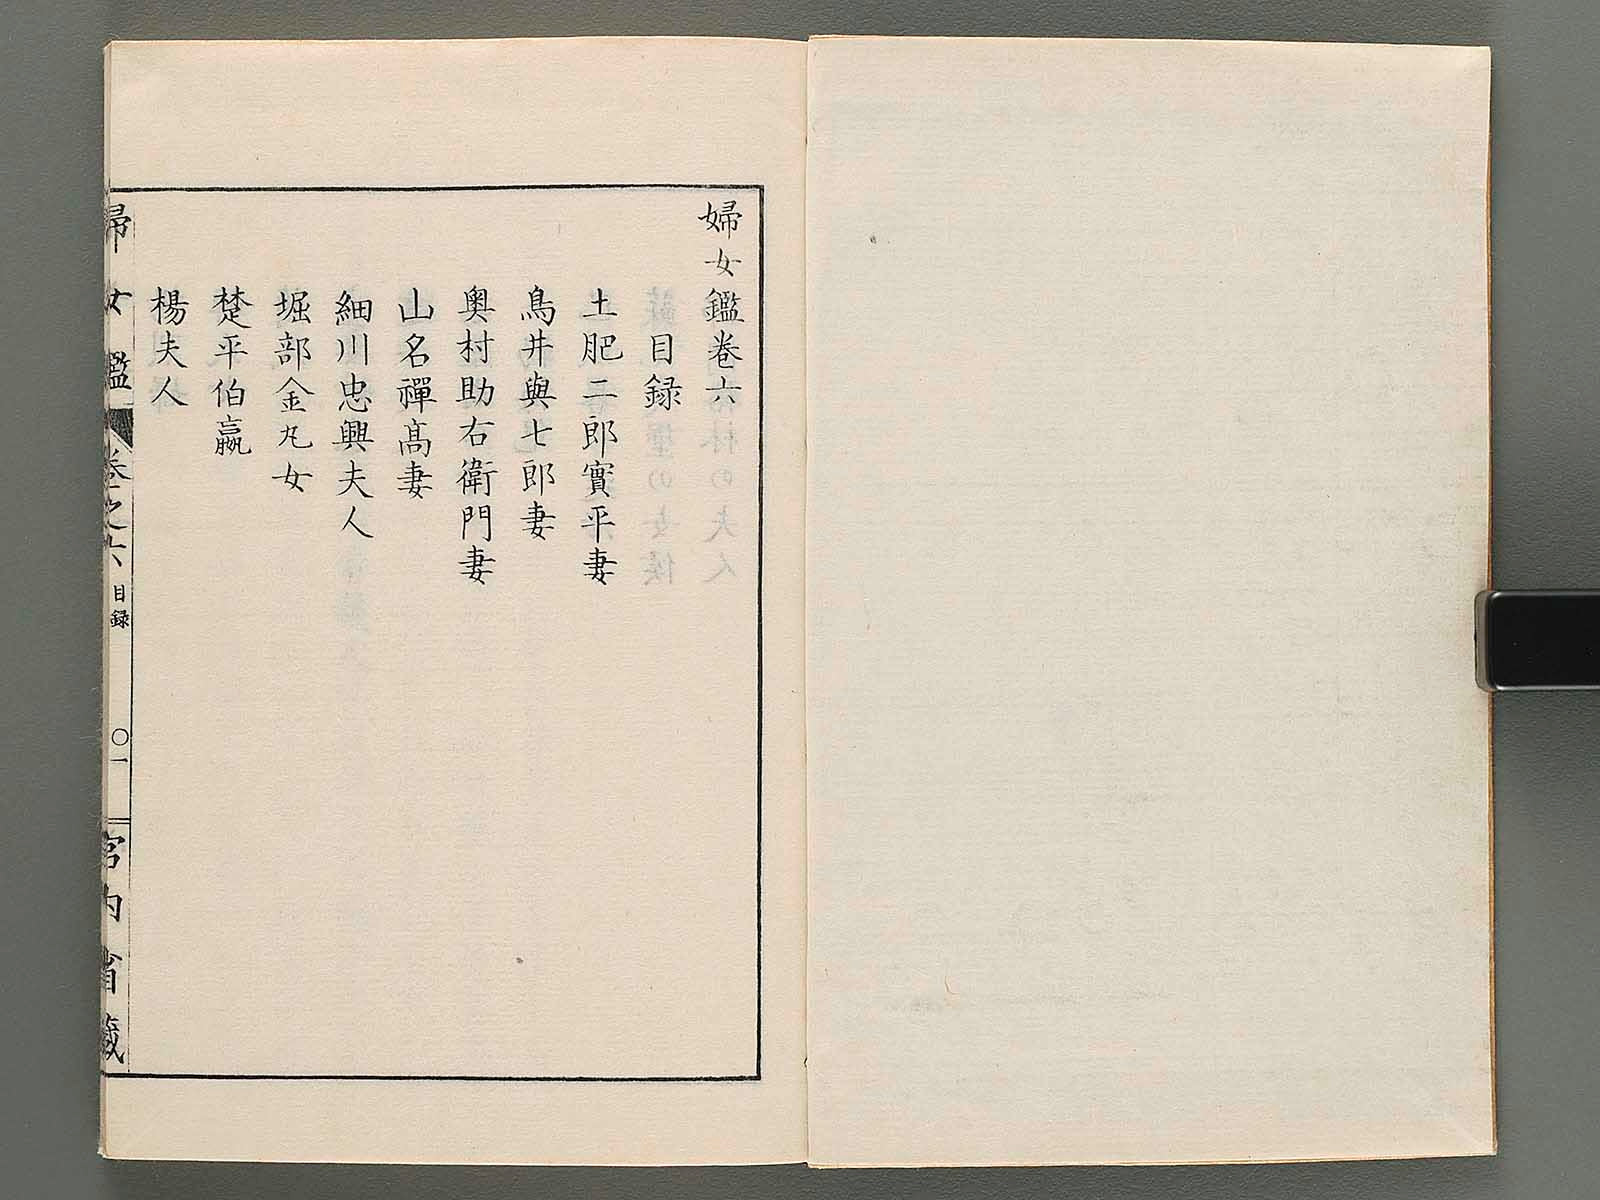 婦女鑑卷六
目録
土肥二郎實平妻
鳥井與七郎妻
奥村助右衛門妻
山名禪髙妻
細川忠興夫人
堀部金丸女
楚平伯嬴
楊夫人
婦女鑑 卷之六 目録 〇一 宮内省藏